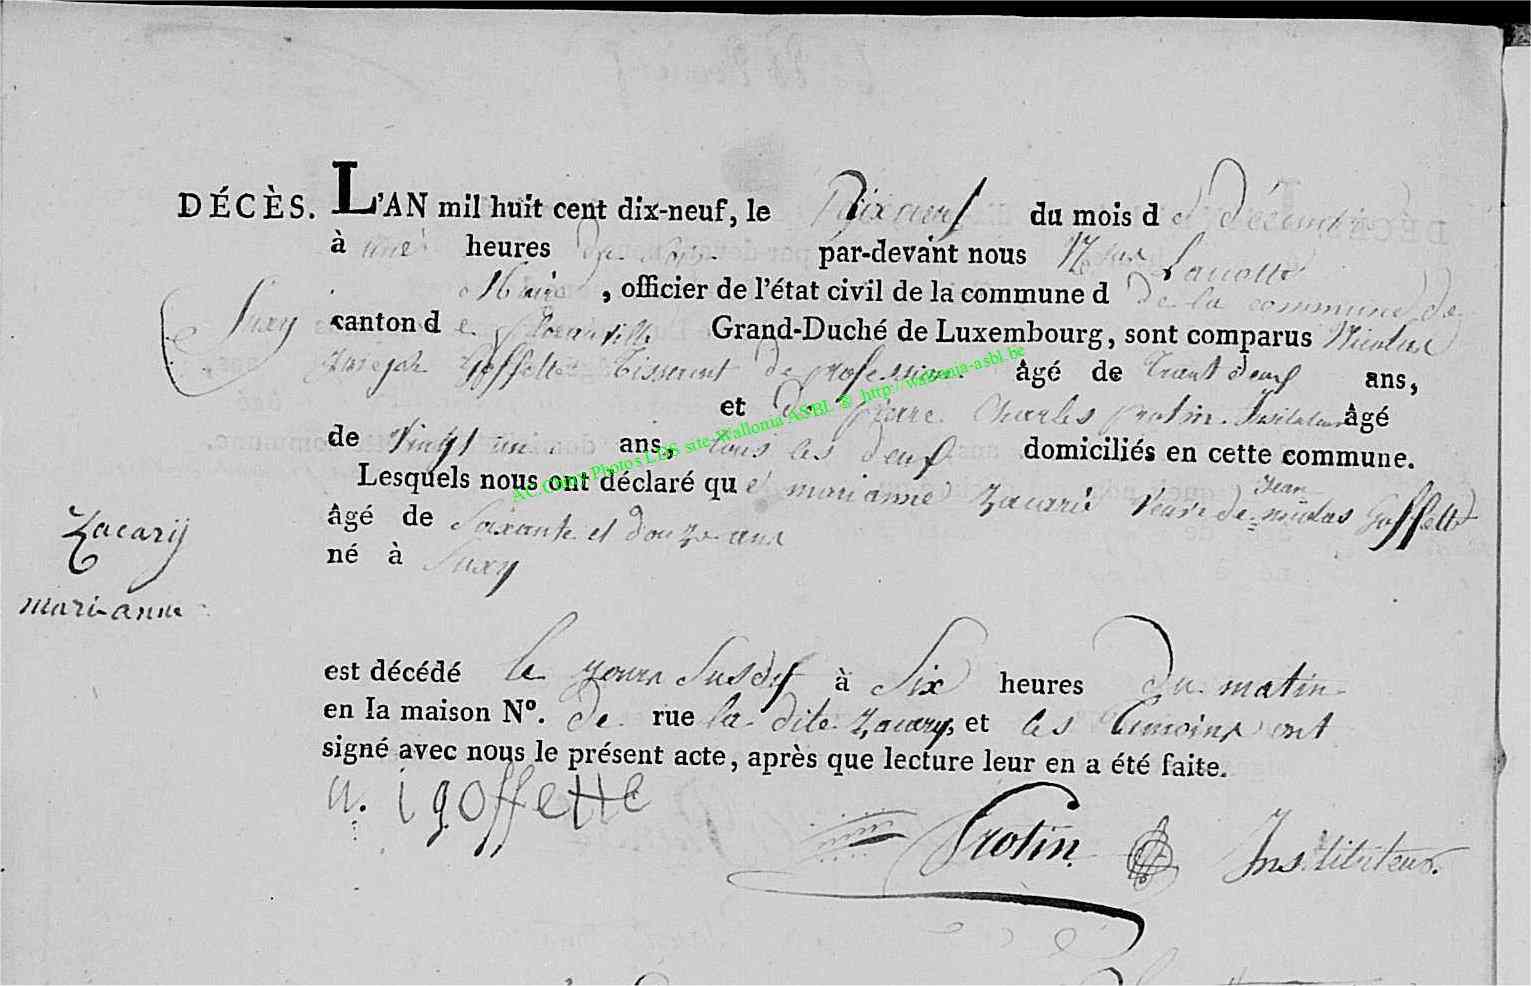 DÉCÈS. L'AN mil huit cent dix-neuf, le Dixneuf du mois d e Decembre
à une heures du soir par-devant nous Nlas Lavotte
Maire, officier de l'état civil de la commune d de la commune de
Suxy canton d e florenville Grand-Duché de Luxembourg, sont comparus Nicolas
Joseph Goffette Tisserant de profession âgé de trant deuf ans,
et de pierre Charles protin Instituteur âgé
de Vingt un ans, tous les deuf domiciliés en cette commune.
Lesquels nous ont déclaré qu e marianne Zacarie Veuve de Jean nicolas Goffette
âgé de Soixante et douze ans
né à Suxy
Zacarij
mari-anne
est décédé le jour susdit à Six heures du matin
en la maison N°. de rue la dite Zacary, et les temoins ont
signé avec nous le présent acte, après que lecture leur en a été faite.
n. i goffette
Protin Instituteur.
AC.Chiny Photos LDS site Wallonia ASBL © http://wallonia-asbl.be